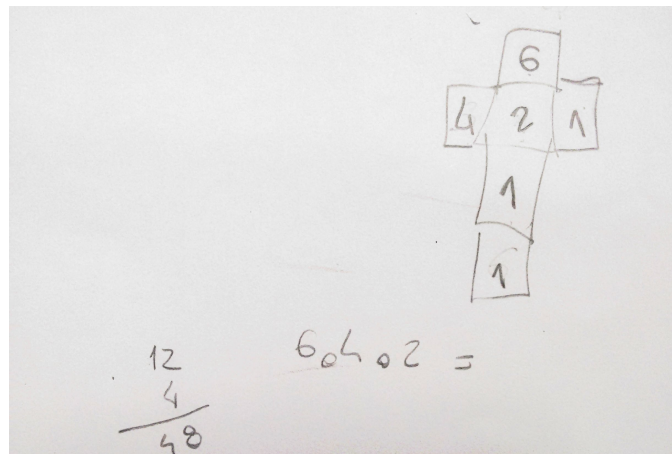 6
4 2 1
1
1
12
4
48
6.4.2 =